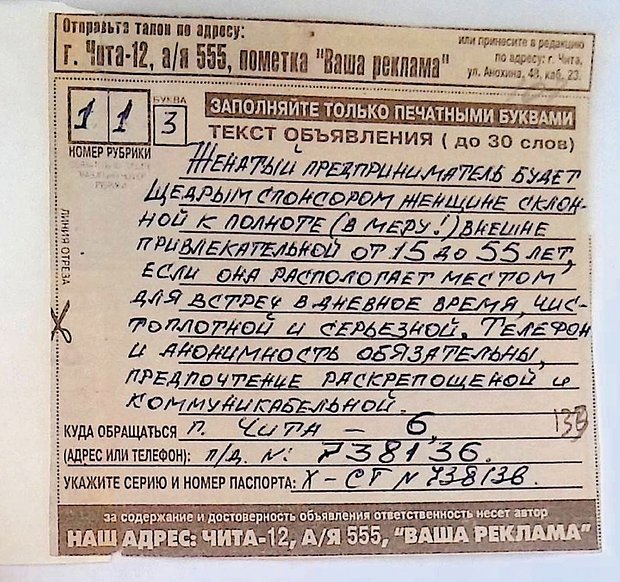 Отправьте талон по адресу:
г. Чита-12, а/я 555, пометка "Ваша реклама"
или принесите в редакцию
по адресу: г. Чита,
ул. Анохина, 48, каб. 23.
БУКВА
1 1 З
НОМЕР РУБРИКИ
ЗАПОЛНЯЙТЕ ТОЛЬКО ПЕЧАТНЫМИ БУКВАМИ
ТЕКСТ ОБЪЯВЛЕНИЯ ( до 30 слов)
ЛИНИЯ ОТРЕЗА
ЖЕНАТЫЙ ПРЕДПРИНИМАТЕЛЬ БУДЕТ
ЩЕДРЫМ СПОНСОРОМ ЖЕНЩИНЕ СКЛОН-
НОЙ К ПОЛНОТЕ (В МЕРУ!) ВНЕШНЕ
ПРИВЛЕКАТЕЛЬНОЙ ОТ 15 ДО 55 ЛЕТ,
ЕСЛИ ОНА РАСПОЛОГАЕТ МЕСТОМ
ДЛЯ ВСТРЕЧ В ДНЕВНОЕ ВРЕМЯ, ЧИС-
ТОПЛОТНОЙ И СЕРЬЕЗНОЙ. ТЕЛЕФОН
И АНОНИМНОСТЬ ОБЯЗАТЕЛЬНЫ,
ПРЕДПОЧТЕНИЕ РАСКРЕПОЩЕНОЙ И
КОММУНИКАБЕЛЬНОЙ.
КУДА ОБРАЩАТЬСЯ г. ЧИТА - 6,
(АДРЕС ИЛИ ТЕЛЕФОН): П/Д. №: 738136.
УКАЖИТЕ СЕРИЮ И НОМЕР ПАСПОРТА: X-СП N 738136.
за содержание и достоверность объявления ответственность несет автор
НАШ АДРЕС: ЧИТА-12, А/Я 555, "ВАША РЕКЛАМА"